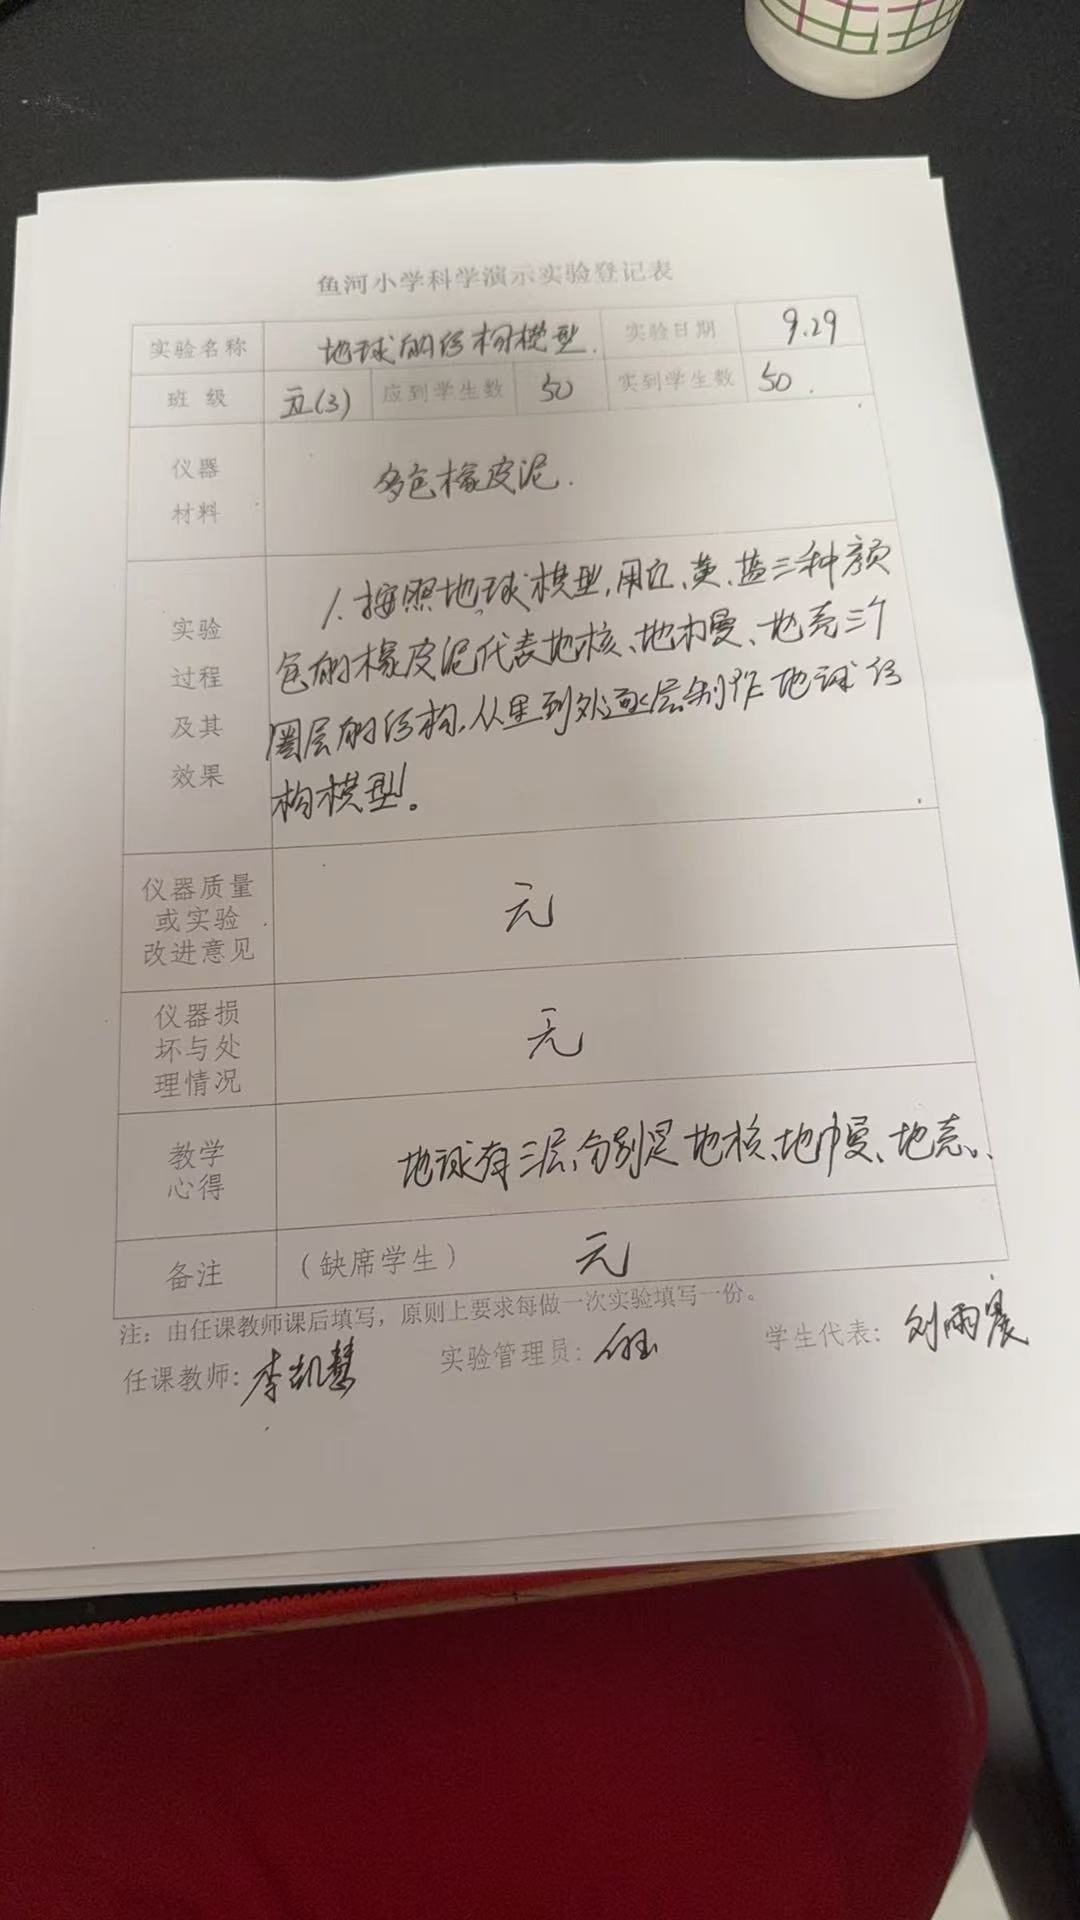 鱼河小学科学演示实验登记表
实验名称 地球的结构模型. 实验日期 9.29
班 级 五(3) 应到学生数 50 实到学生数 50.
仪器
材料
多色橡皮泥.
实验
过程
及其
效果
1.按照地球模型,用红、黄、蓝三种颜
色的橡皮泥代表地核、地幔、地壳三个
圈层的结构,从里到外逐层制作地球结
构模型。
仪器质量
或实验
改进意见
无
仪器损
坏与处
理情况
无
教学
心得
地球有三层,分别是地核、地幔、地壳。
备注 (缺席学生) 无
注：由任课教师课后填写，原则上要求每做一次实验填写一份。
任课教师: 李凯慧 实验管理员: 学生代表: 刘雨宸